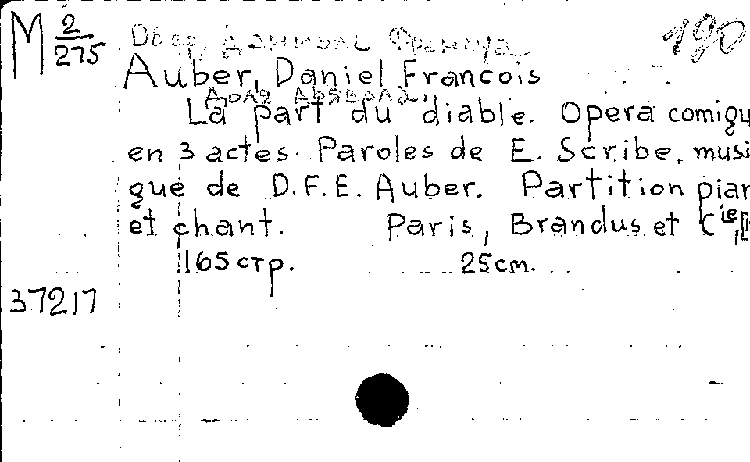 M 2/275 Обер, Даниэль Франсуа 190
Auber, Daniel Francois
Доля дьявола.
La part du diable. Opera comiqu
en 3 actes. Paroles de E. Scribe, musi
que de D.F.E. Auber. Partition pian
et chant. Paris, Brandus et Cie
165 стр. 25cm.
37217